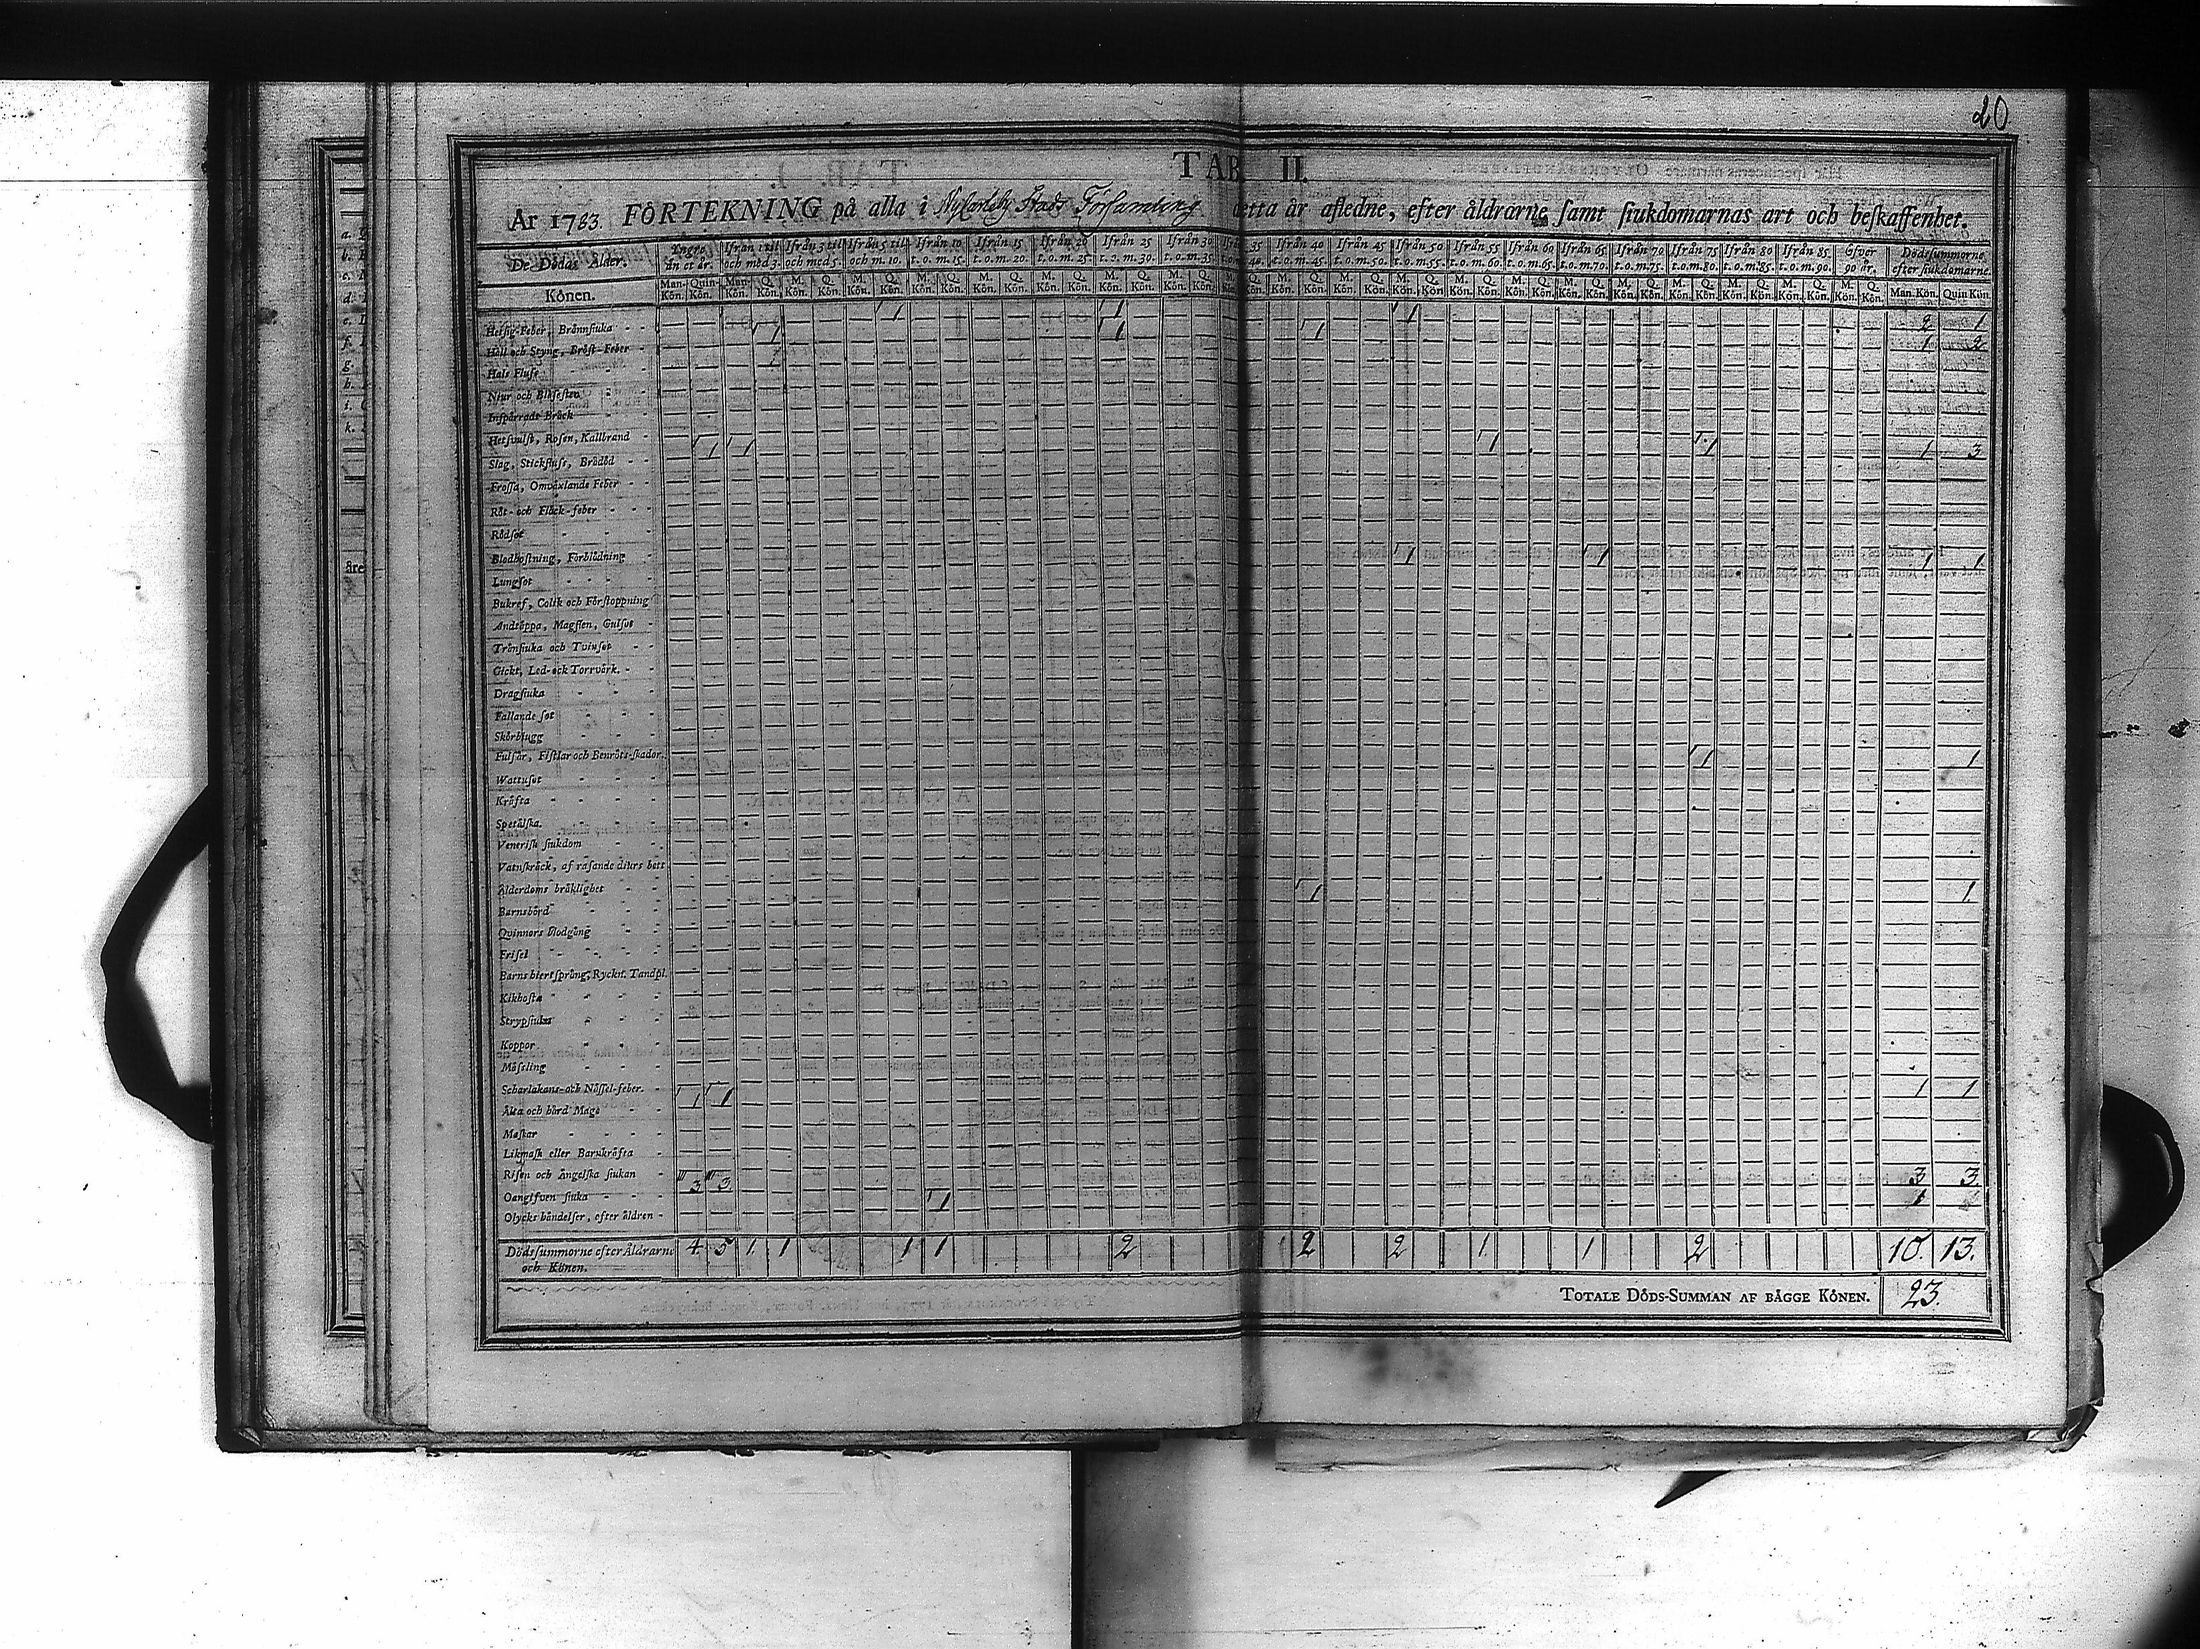 20
TAB. II.
År 1783. FÖRTEKNING på alla i Nycarleby Stads Församling detta år afledne, efter åldrarne ſamt ſiukdomarnas art och beſkaffenhet.
De Dödas Ålder. Yngre än et år. Ifrån 1 til och med 3. Ifrån 3 til och med 5. Ifrån 5 til och m. 10. Ifrån 10 t. o. m. 15. Ifrån 15 t. o. m. 20. Ifrån 20 t. o. m. 25. Ifrån 25 t. o. m. 30. Ifrån 30 t. o. m. 35. 35 40. Ifrån 40 t. o. m. 45. Ifrån 45 t. o. m. 50. Ifrån 50 t. o. m. 55. Ifrån 55 t. o. m. 60. Ifrån 60 t. o. m. 65. Ifrån 65 t. o. m. 70. Ifrån 70 t. o. m. 75. Ifrån 75 t. o. m. 80. Ifrån 80 t. o. m. 85. Ifrån 85 t. o. m. 90. Öfver 90 år. Dödsſummorne efter ſiukdomarne.
Könen. Man-Kön. Quin-Kön. Man-Kön. Q. Kön. M. Kön. Q. Kön. M. Kön. Q. Kön. Man. Kön. Quin Kön
Hetſig-Feber, Brännſiuka - - 1 1 1 2 1
Håll och Styng, Bröſt-Feber - 1 1 1 1 2
Hals Fluſs
Niur och Blåſeſten
Inſpärradt Bråck
Hetſvulſt, Roſen, Kallbrand -
Slag, Stickfluſs, Brådöd - - 1 1 1 1 1 3
Froſſa, Omväxlande Feber - -
Röt- och Fläck-feber - - -
Rödſot
Blodhoſtning, Förblödning
Lungſot 1 1 1 1
Bukref, Colik och Förſtoppning
Andtäppa, Magſien, Gulſot -
Trånſiuka och Tvinſot - -
Gickt, Led- och Torrvärk. - -
Dragſiuka
Fallande ſot
Skörbiugg
Fulſår, Fiſtlar och Benröte-ſkador.
Wattuſot 1 1
Kräfta
Spetälſka.
Veneriſk ſiukdom
Vatuſkräck, af raſande diurs bett
Ålderdoms bräklighet
Barnsbörd 1 1
Qvinnors Blodgång
Friſel
Barns biertſprång, Ryckn. Tandpl.
Kikhoſta
Strypſiuka
Koppor
Mäſeling
Scharlakans- och Näſſel-feber. -
Älta och hård Mage - - 1 1 1 1
Maſkar
Likmaſk eller Barnkräfta
Riſen och Ängelſka ſiukan -
Oangifven ſiuka - - - 3 3 3 3.
Olycks händelſer, efter åldren - 1 1
Dödsſummorne efter Åldrarne 4 5 1. 1 1 1 2 2 2 1. 1 2 10. 13.
och Könen.
TOTALE DÖDS-SUMMAN AF BÄGGE KÖNEN. 23.